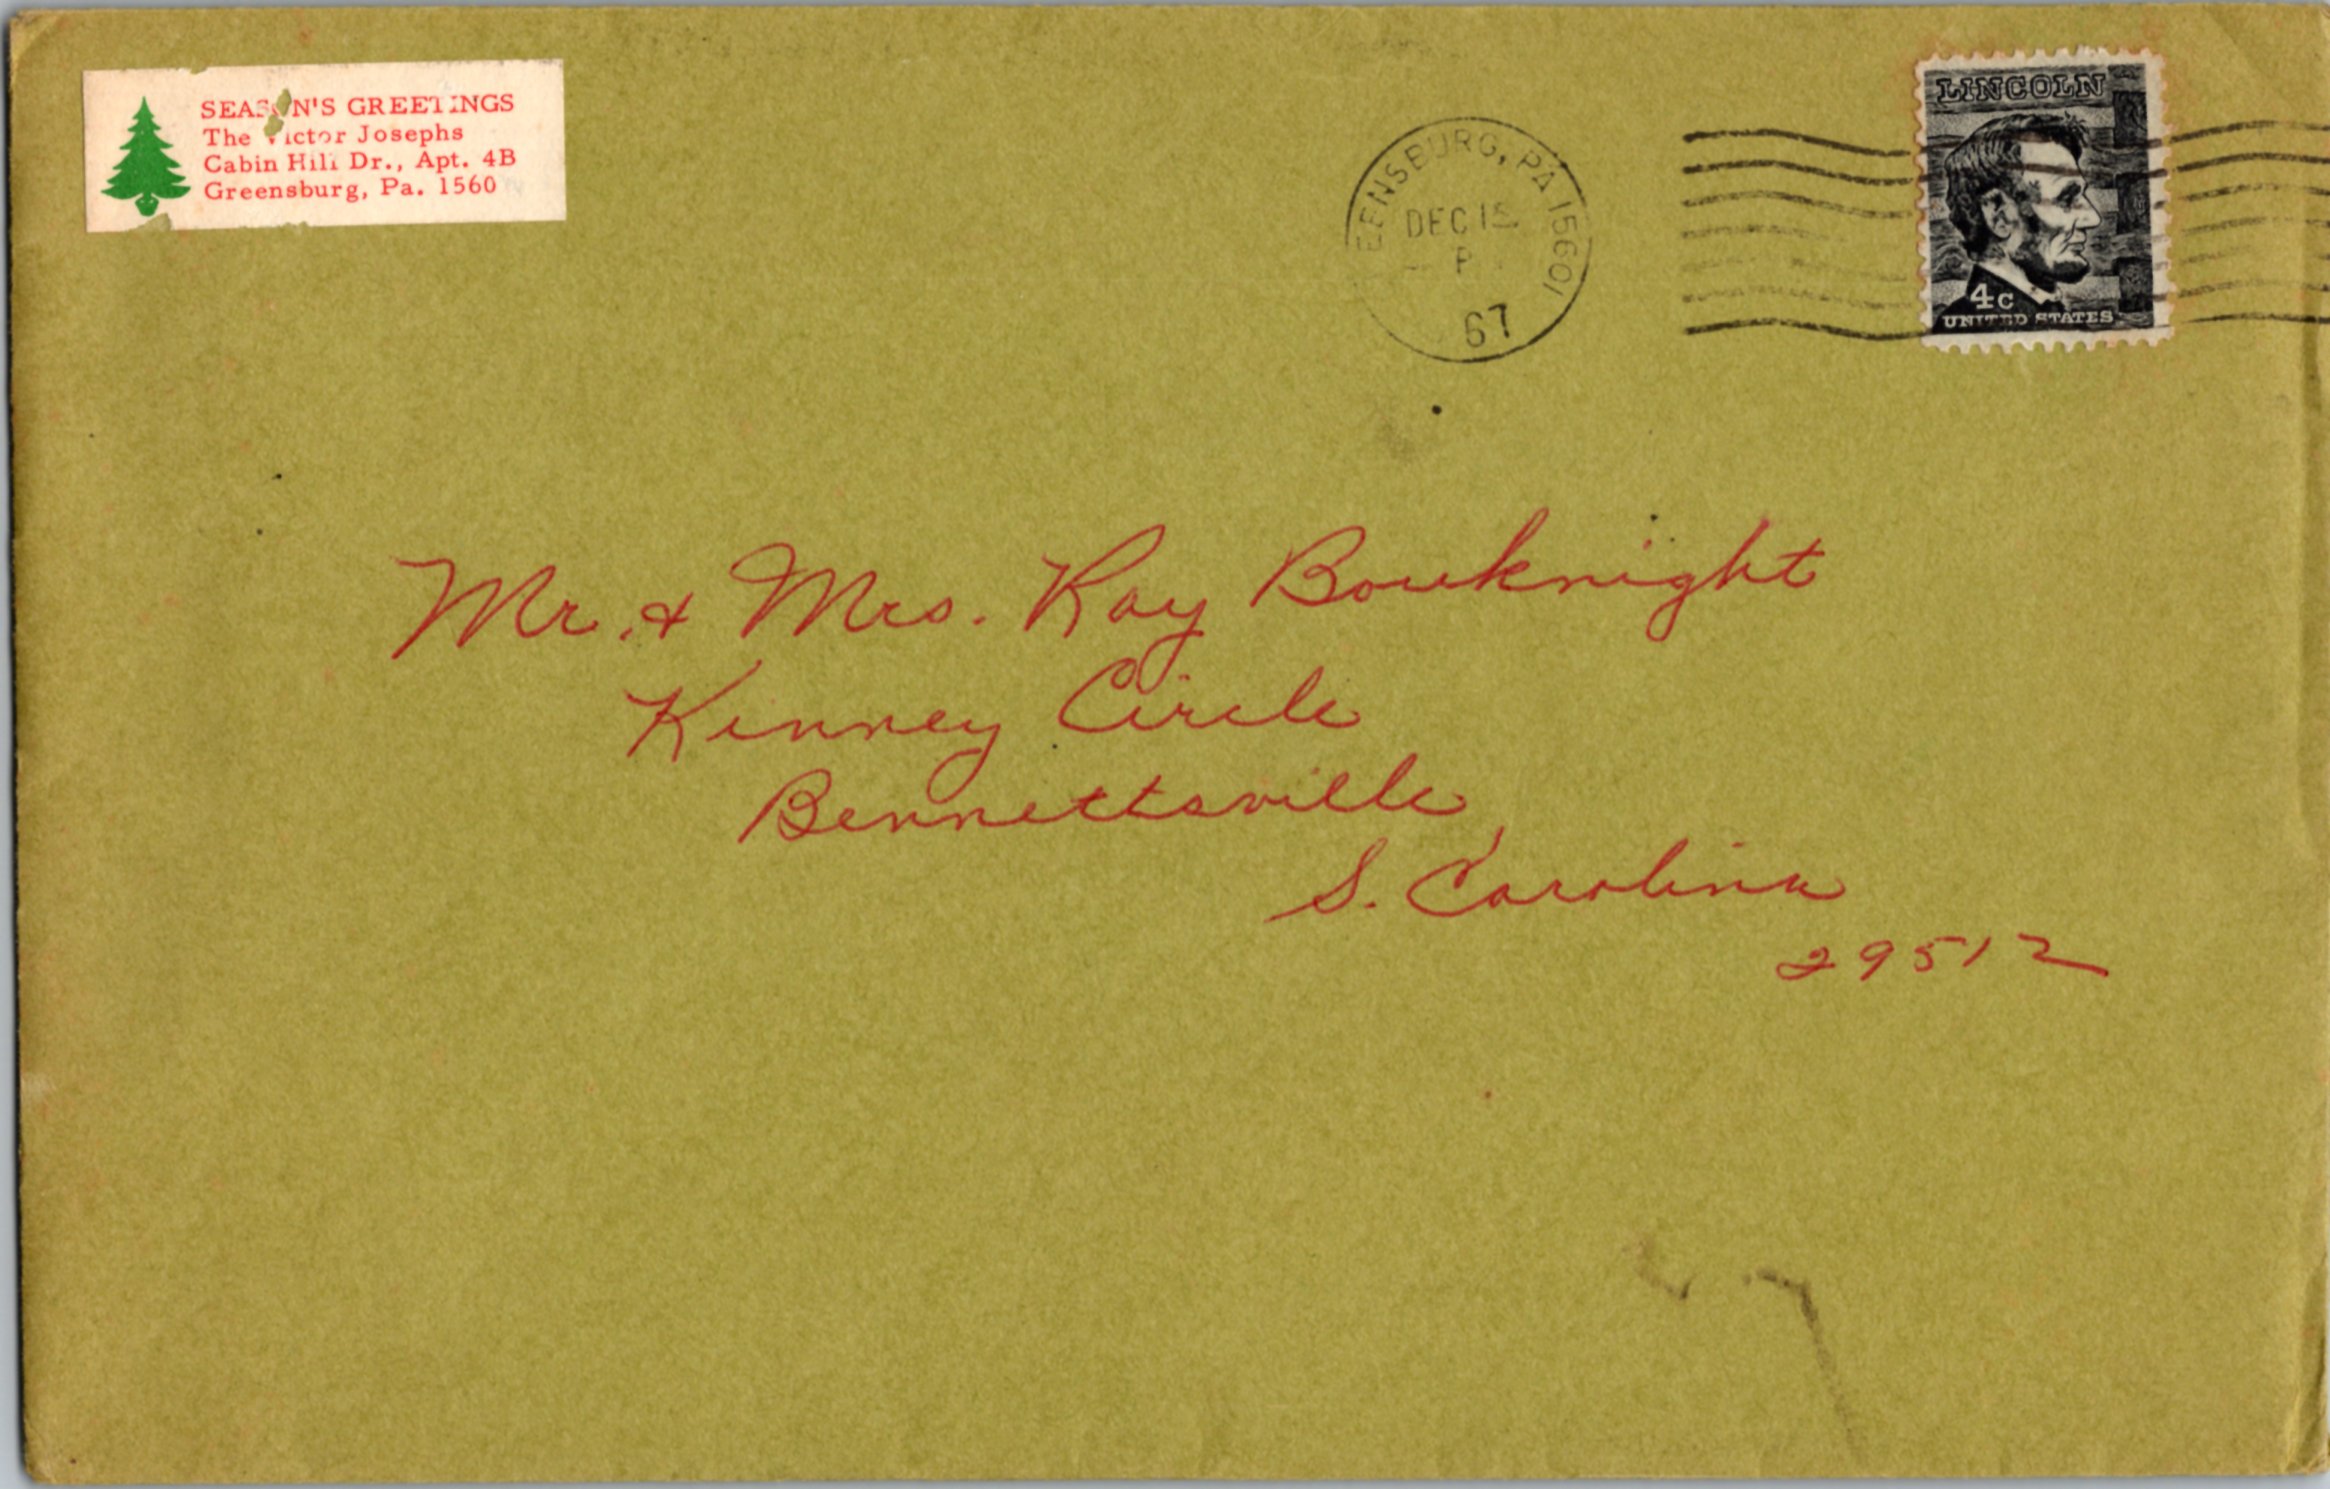 SEASON'S GREETINGS
The Victor Josephs
Cabin Hill Dr., Apt. 4B
Greensburg, Pa. 1560
EENSBURG, PA 15601
DEC 15
P
67
LINCOLN
4c
UNITED STATES
Mr. & Mrs. Ray Bouknight
Kinney Circle
Bennettsville,
S. Carolina
29512